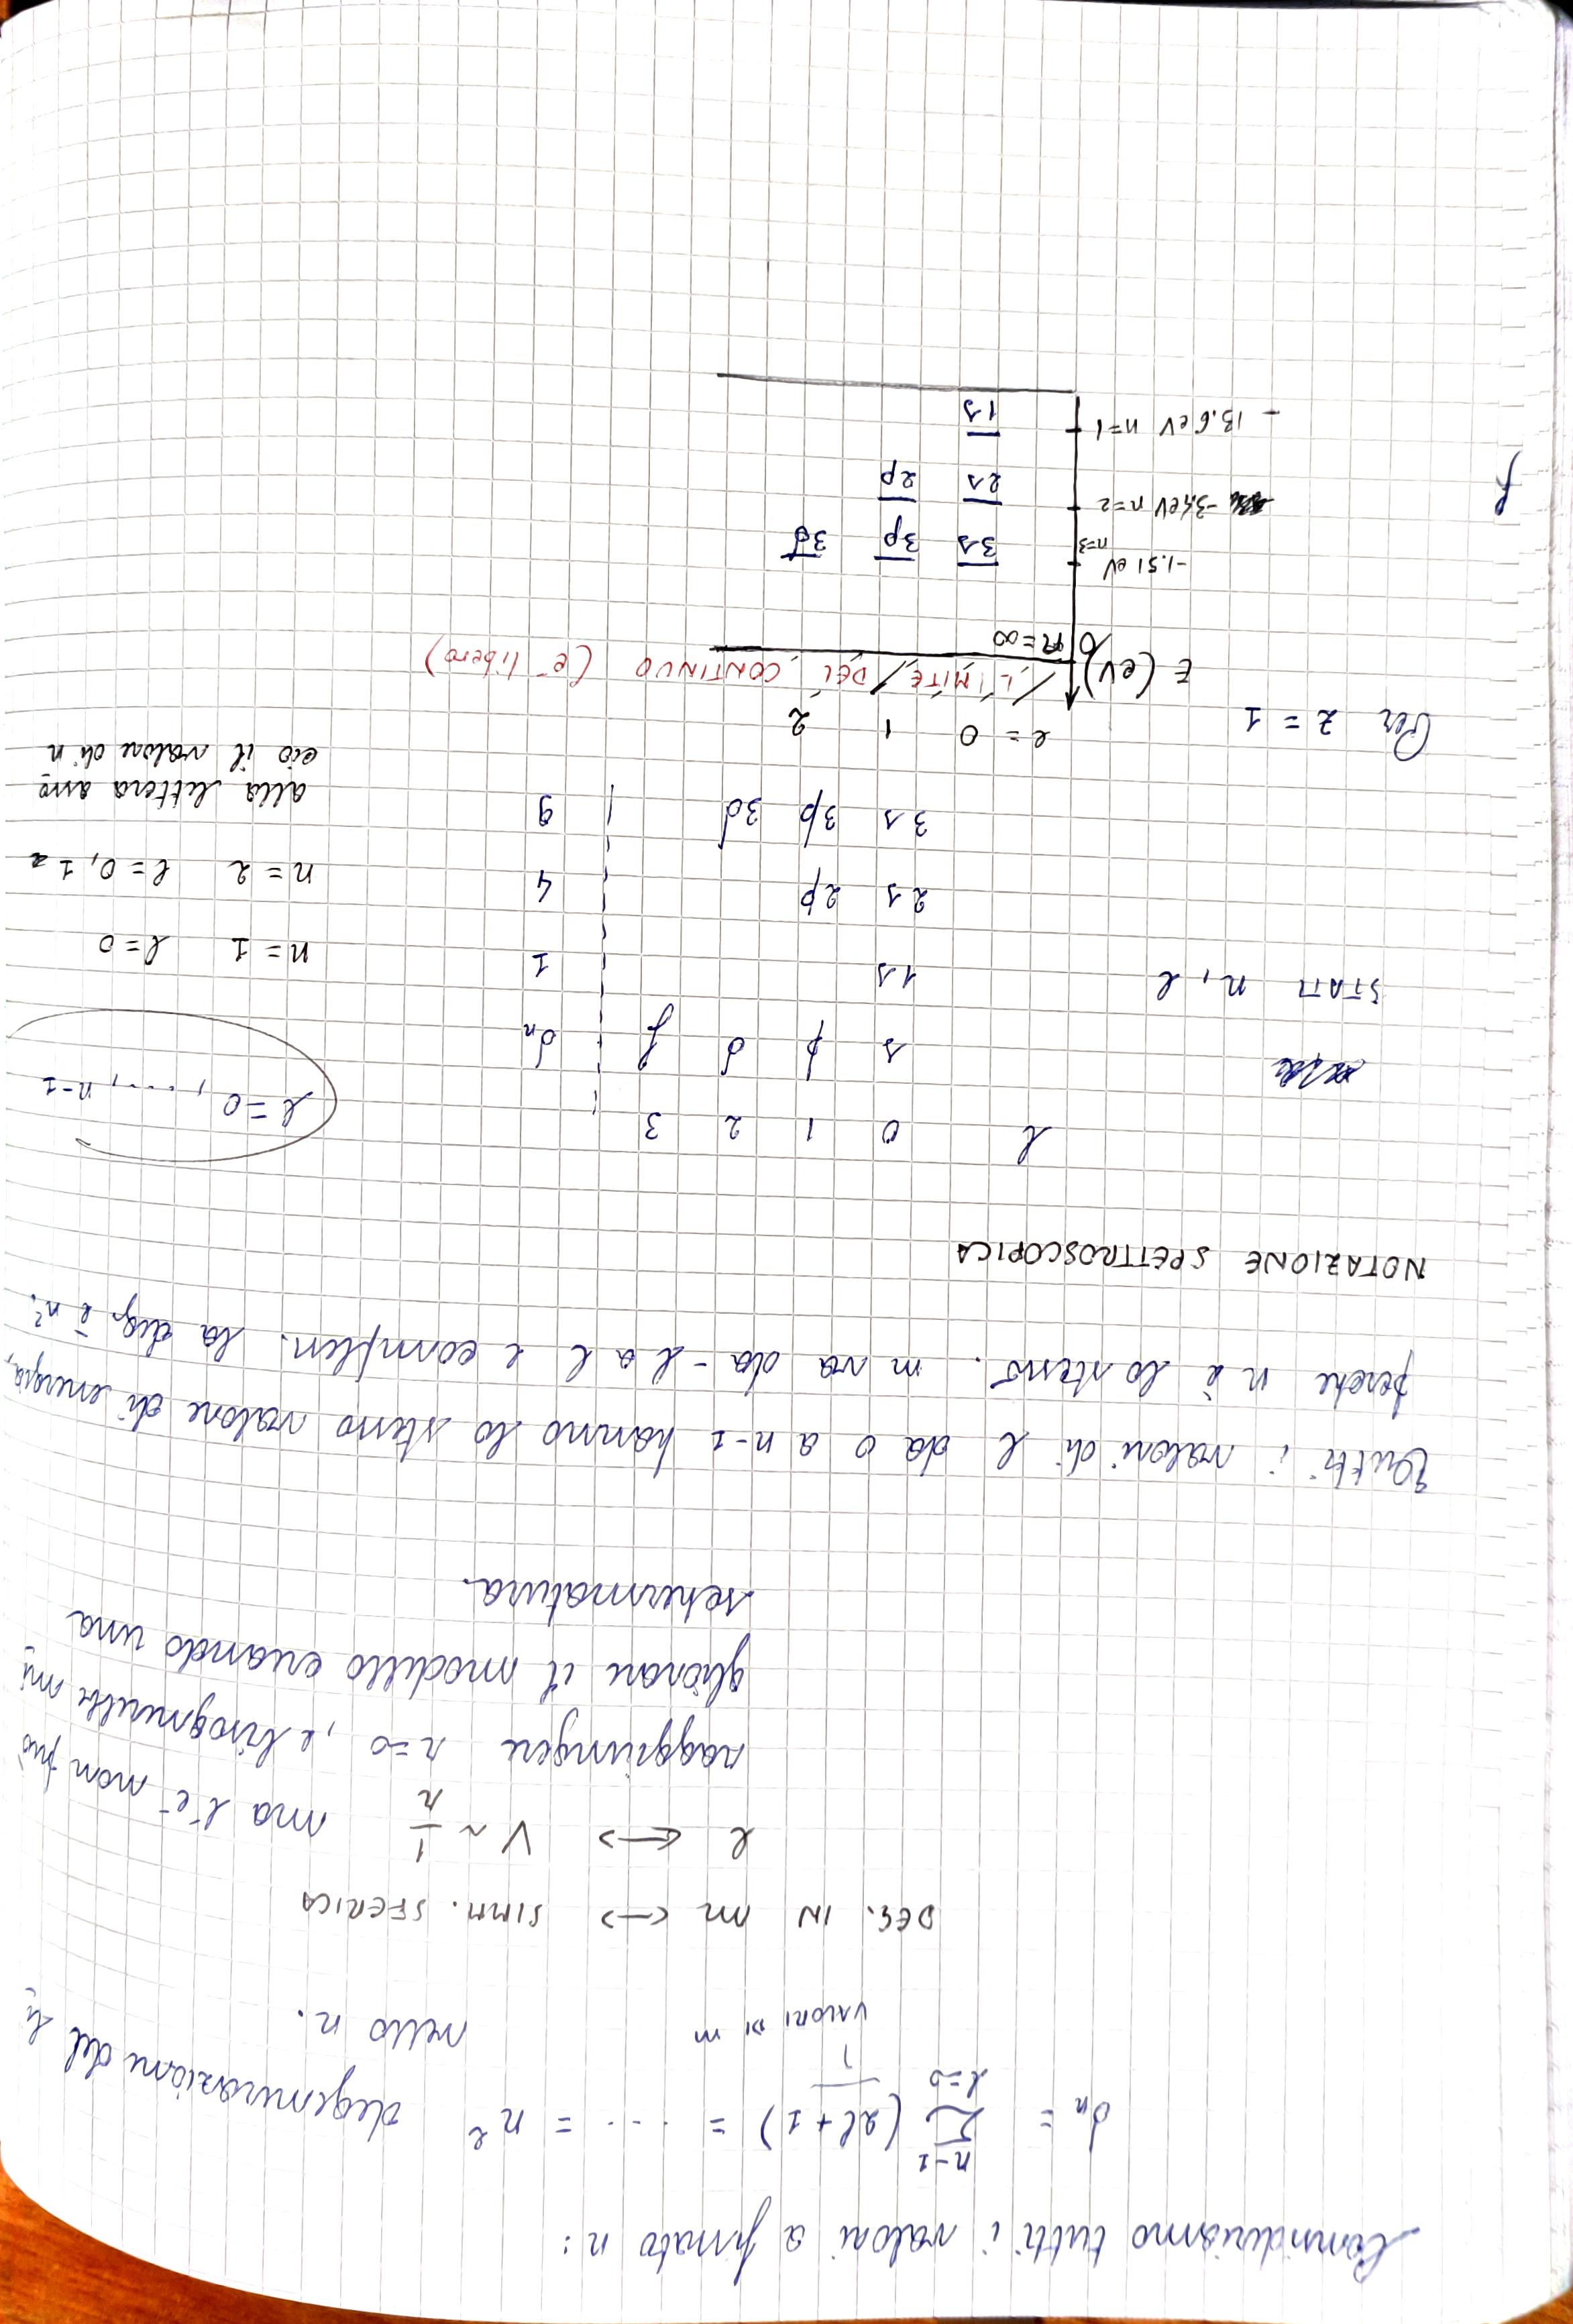 Consideriamo tutti i valori a fissato n:
dₙ = Σ_{l=0}^{n-1} (2l+1) = ... = n² degenerazione del li
VALORI DI m
vello n.
DEG. IN m ↔ SIMM. SFERICA
l ↔ V ~ 1/r ma l'e⁻ non può
raggiungere r=0, e bisognerebbe mi
gliorare il modello creando una
schermatura.
Tutti i valori di l da 0 a n-1 hanno lo stesso valore di energia,
perché n è lo stesso. m va da -l a l e complen. la deg. è n².
NOTAZIONE SPETTROSCOPICA
l 0 1 2 3
l=0, ..., n-1
s p d f dₙ
STATI n, l 1s 1 n=1 l=0
2s 2p 4 n=2 l=0,1
3s 3p 3d 9 alla lettera asso
cio il valore di n
Per z=1 l= 0 1 2
E(eV) LIMITE DEL CONTINUO (e⁻ libero)
0 n=∞
-1.51 eV n=3 3s 3p 3d
-3.4 eV n=2 2s 2p
-13.6 eV n=1 1s
f